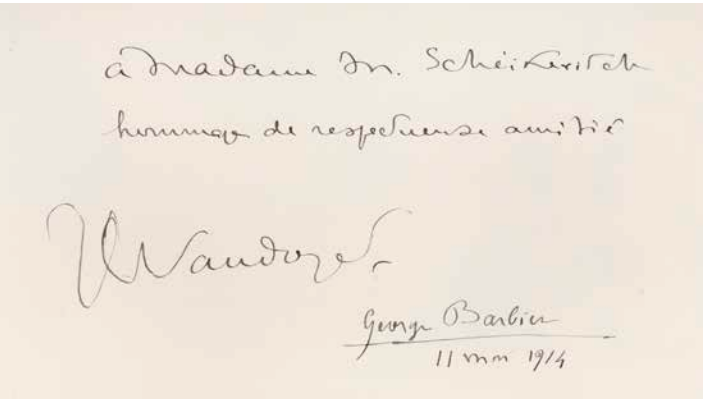 à Madame M. Schéikevitch
hommage de respectueuse amitié
JLVaudoyer
George Barbier
11 mai 1914